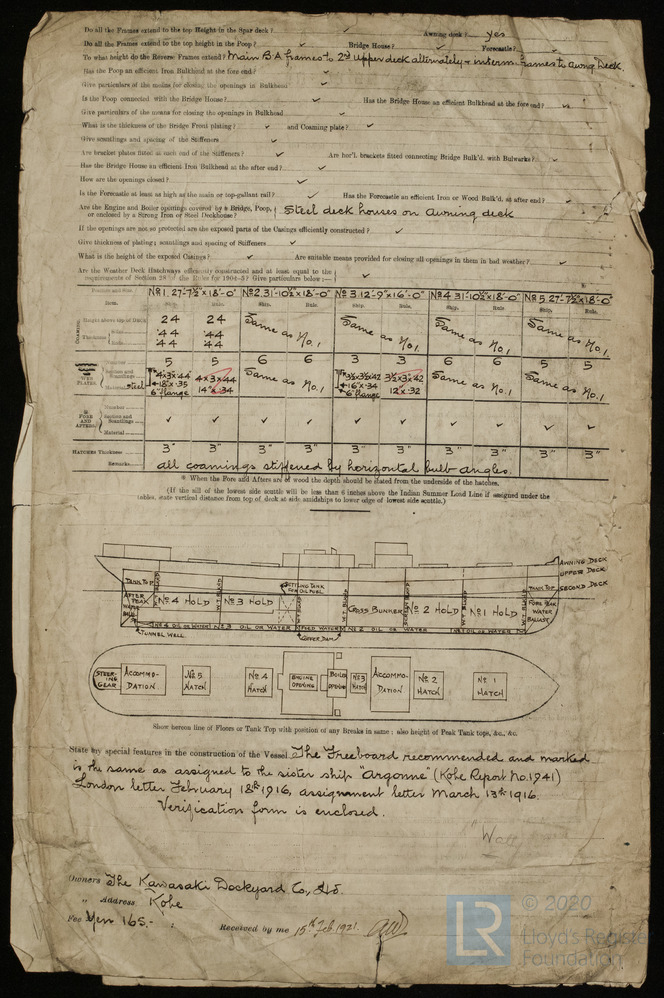 Do all the Frames extend to the top Height in the Spar deck? Awning deck? yes
Do all the Frames extend to the top height in the Poop? ✓ Bridge House? ✓ Forecastle? ✓
To what height do the Reverse Frames extend? Main B A frames to 2nd upper deck alternately & interm frames to awng Deck.
Has the Poop an efficient Iron Bulkhead at the fore end? ✓
Give particulars of the means for closing the openings in Bulkhead ✓
Is the Poop connected with the Bridge House? ✓ Has the Bridge House an efficient Bulkhead at the fore end? ✓
Give particulars of the means for closing the openings in Bulkhead ✓
What is the thickness of the Bridge Front plating? ✓ and Coaming plate? ✓
Give scantlings and spacing of the Stiffeners ✓
Are bracket plates fitted at each end of the Stiffeners? ✓ Are hor'l. brackets fitted connecting Bridge Bulk'd. with Bulwarks? ✓
Has the Bridge House an efficient Iron Bulkhead at the after end? ✓
How are the openings closed? ✓
Is the Forecastle at least as high as the main or top-gallant rail? ✓ Has the Forecastle an efficient Iron or Wood Bulk'd. at after end? ✓
Are the Engine and Boiler openings covered by a Bridge, Poop, or enclosed by a Strong Iron or Steel Deckhouse? Steel deck houses on awning deck
If the openings are not so protected are the exposed parts of the Casings efficiently constructed? ✓
Give thickness of plating; scantlings and spacing of Stiffeners ✓
What is the height of the exposed Casings? ✓ Are suitable means provided for closing all openings in them in bad weather? ✓
Are the Weather Deck Hatchways efficiently constructed and at least equal to the
requirements of Section 28 of the Rules for 1904-5? Give particulars below:— ✓
Position and Size No 1. 27'-7½" x 18'-0" No 2. 31'-10½" x 18'-0" No 3. 12'-9" x 16'-0" No 4. 31'-10½" x 18'-0" No 5. 27'-7½" x 18'-0"
Item. Ship. Rule. Ship. Rule. Ship. Rule. Ship. Rule. Ship. Rule.
COAMING Height above top of Deck 24 24 Same as No. 1 Same as No. 1 Same as No. 1 Same as No. 1
Thickness Sides .44 .44
Ends .44 .44
Number 5 5 6 6 3 3 6 6 5 5
WEB PLATES Section and Scantlings 4x3x.44 4x3x.44 Same as No. 1 3½x3½x.42 3½x3x.42 Same as No. 1 Same as No. 1
Material Steel 18"x.35 14"x.34 16"x.34 12"x.32
6" flange 6" flange
* FORE AND AFTERS Number
Section and Scantlings ✓ ✓ ✓ ✓ ✓ ✓ ✓ ✓ ✓ ✓
Material
HATCHES Thickness 3" 3" 3" 3" 3" 3" 3" 3" 3" 3"
Remarks all coamings stiffened by horizontal bulb angles.
* When the Fore and Afters are of wood the depth should be stated from the underside of the hatches.
(If the sill of the lowest side scuttle will be less than 6 inches above the Indian Summer Load Line if assigned under the
tables, state vertical distance from top of deck at side amidships to lower edge of lowest side scuttle.)
AWNING DECK
UPPER DECK
SECOND DECK
TANK TOP
SETTLING TANK FOR OIL FUEL
TANK TOP
AFTER PEAK WATER BALLAST
No 4 HOLD
No 3 HOLD
CROSS BUNKER
No 2 HOLD
No 1 HOLD
FORE PEAK WATER BALLAST
W.T. BULKHD
No 4 OIL OR WATER No 3 OIL OR WATER FEED WATER No 2 OIL OR WATER No 1 OIL OR WATER
TUNNEL WELL
COFFER DAM
STEERING GEAR
ACCOMMODATION
No 5 HATCH
No 4 HATCH
ENGINE OPENING
BOILER OPENING
No 3 HATCH
ACCOMMODATION
No 2 HATCH
No 1 HATCH
Show hereon line of Floors or Tank Top with position of any Breaks in same; also height of Peak Tank tops, &c., &c.
State any special features in the construction of the Vessel The Freeboard recommended and marked
is the same as assigned to the sister ship "Argonne" (Kobe Report No. 1941)
London letter February 18th 1916, assignment letter March 13th 1916.
Verification form is enclosed.
Owners The Kawasaki Dockyard Co., Ltd.
" Address Kobe
Fee Yen 165.- :
Received by me 15th Feb. 1921.
LR © 2020
Lloyd's Register
Foundation